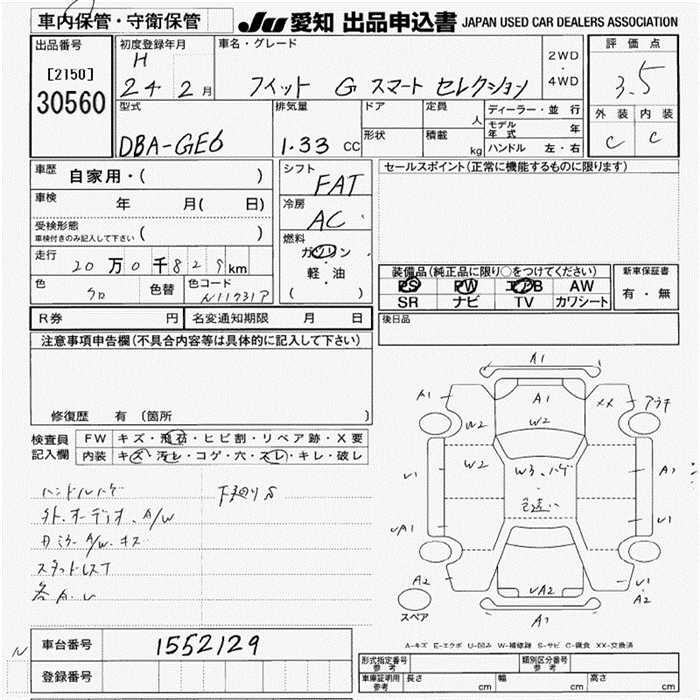 車内保管・守衛保管 JU 愛知 出品申込書 JAPAN USED CAR DEALERS ASSOCIATION
出品番号
[2150]
30560
初度登録年月
H
24 2 月
車名・グレード
フィット G スマート セレクション
2WD
・
4WD
評価点
3.5
外装 内装
C C
型式
DBA-GE6
排気量
1.33 CC
ドア
形状
定員
人
積載
kg
ディーラー・並行
モデル年式 年
ハンドル 左・右
車歴
自家用・( )
車検
年 月( 日)
受検形態
車検付きのみ記入して下さい ( )
走行
20 万 0 千 829 km
色
クロ
色替
色コード
シフト
FAT
冷房
AC
燃料
ガソリン
・
軽・油
( )
セールスポイント(正常に機能するものに限ります)
装備品(純正品に限り○をつけてください)
PS PW エアB AW
SR ナビ TV カワシート
新車保証書
有・無
後日品
R券 円 名変通知期限 月 日
注意事項申告欄(不具合内容等は具体的に記入して下さい)
修復歴 有 (箇所 )
検査員
記入欄
FW キズ・飛石・ヒビ割・リペア跡・X要
内装 キズ・汚れ・コゲ・穴・スレ・キレ・破レ
ハンドルハゲ 下廻りS
外.オーディオ.A/W
カミラーA/W.キズ
A1
A1 A1 XX
W2 W2
W2 W3.ハゲ
色違い
V1 A1
V1
A2 VA2 V1
A2
A1
スペア
A-キズ E-エクボ U-凹み W-補修跡 S-サビ C-腐食 XX-交換済
N
車台番号 1552129
登録番号
形式指定番号
参考
類別区分番号
参考
車庫証明用
参考
長さ cm 幅 cm 高さ cm